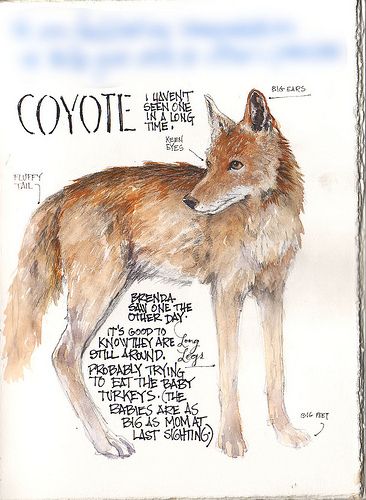 COYOTE
I HAVEN'T
SEEN ONE
IN A LONG
TIME.
BIG EARS
KEEN
EYES
FLUFFY
TAIL
BRENDA
SAW ONE THE
OTHER DAY.
IT'S GOOD TO
KNOW THEY ARE
STILL AROUND.
PROBABLY TRYING
TO EAT THE BABY
TURKEYS. (THE
BABIES ARE AS
BIG AS MOM AT
LAST SIGHTING)
Long
Legs
BIG FEET